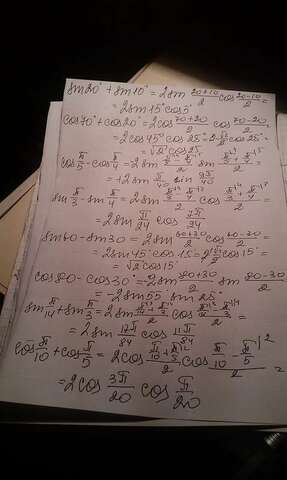 sin20° + sin10° = 2sin (20+10)/2 cos (20-10)/2 =
= 2sin15° cos5°
cos70° + cos20° = 2cos (70+20)/2 cos (70-20)/2 =
= 2cos45° cos25° = 2·√2/2 cos25° =
= √2 cos25°
cos π/5 - cos π/4 =
= +2sin π/40 sin 9π/40
sin π/3 - sin π/4 = 2sin
= 2sin π/24 cos 7π/24
sin60 - sin30 = 2sin (60+30)/2 cos (60-30)/2 =
= 2sin45° cos15° = 2·√2/2 cos15° =
= √2 cos15°
cos80 - cos30° = -2sin (80+30)/2 sin (80-30)/2
= -2sin55 sin25°
sin π/14 + sin π/3 = 2sin
= 2sin 17π/84 cos 11π/84
cos π/10 + cos π/5 = 2cos (π/10 + π/5)/2 cos (π/10 - π/5)/2 =
= 2cos 3π/20 cos π/20